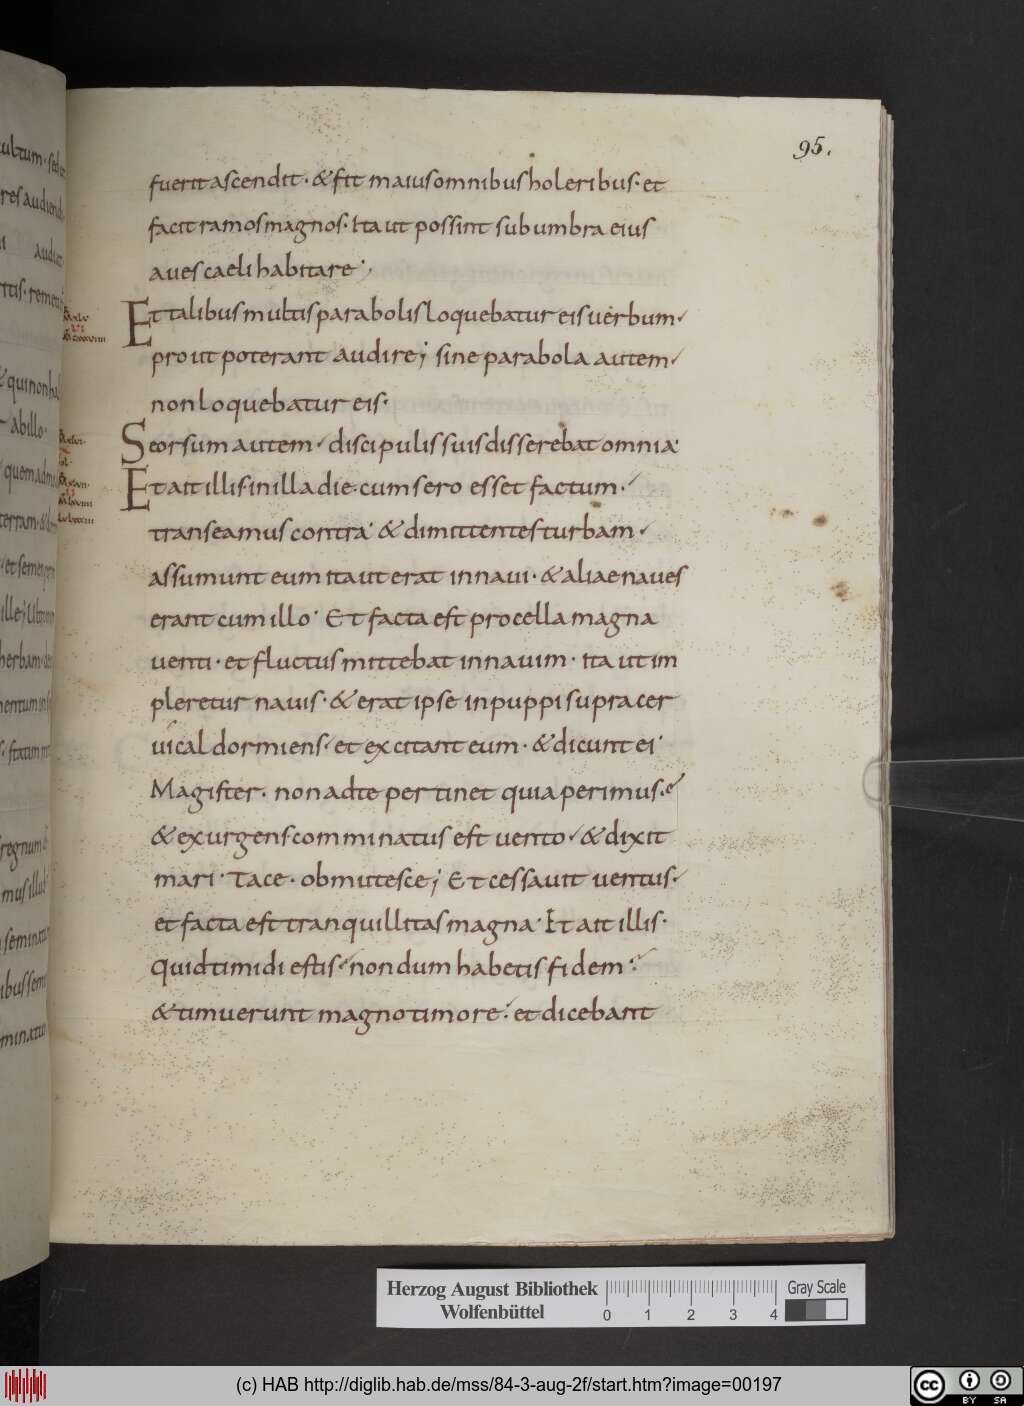 95.
fuerit ascendit · & fit maius omnibus holeribus · et
facit ramos magnos · Ita ut possint sub umbra eius
aues caeli habitare ;
Et talibus multis parabolis loquebatur eis uerbum ·
prout poterant audire ; sine parabola autem ·
non loquebatur eis ·
Seorsum autem · discipulis suis disserebat omnia ·
Et ait illis in illa die · cum sero esset factum ·
transeamus contra · & dimittentes turbam ·
assumunt eum ita ut erat in naui · & aliae naues
erant cum illo · Et facta est procella magna
uenti · et fluctus mittebat in nauim · ita ut im
pleretur nauis · & erat ipse in puppi supra cer
uical dormiens · et excitant eum · & dicunt ei ·
Magister · non ad te pertinet quia perimus ·
& exurgens comminatus est uento · & dixit
mari · Tace · obmutesce ; Et cessauit uentus ·
et facta est tranquillitas magna · Et ait illis ·
Quid timidi estis · nondum habetis fidem ·
& timuerunt magno timore · et dicebant
ultum · sed
res audiend
audit
ttis · remeti
& qui non hab
abillo ·
quem adm
terram · &
et semen
ille ; Ultro
herbam · de
mentum in s
statim m
regnum d
mus illud
seminatu
ibus sem
minatu
Herzog August Bibliothek
Wolfenbüttel
0 1 2 3 4
Gray Scale
(c) HAB http://diglib.hab.de/mss/84-3-aug-2f/start.htm?image=00197
cc BY SA